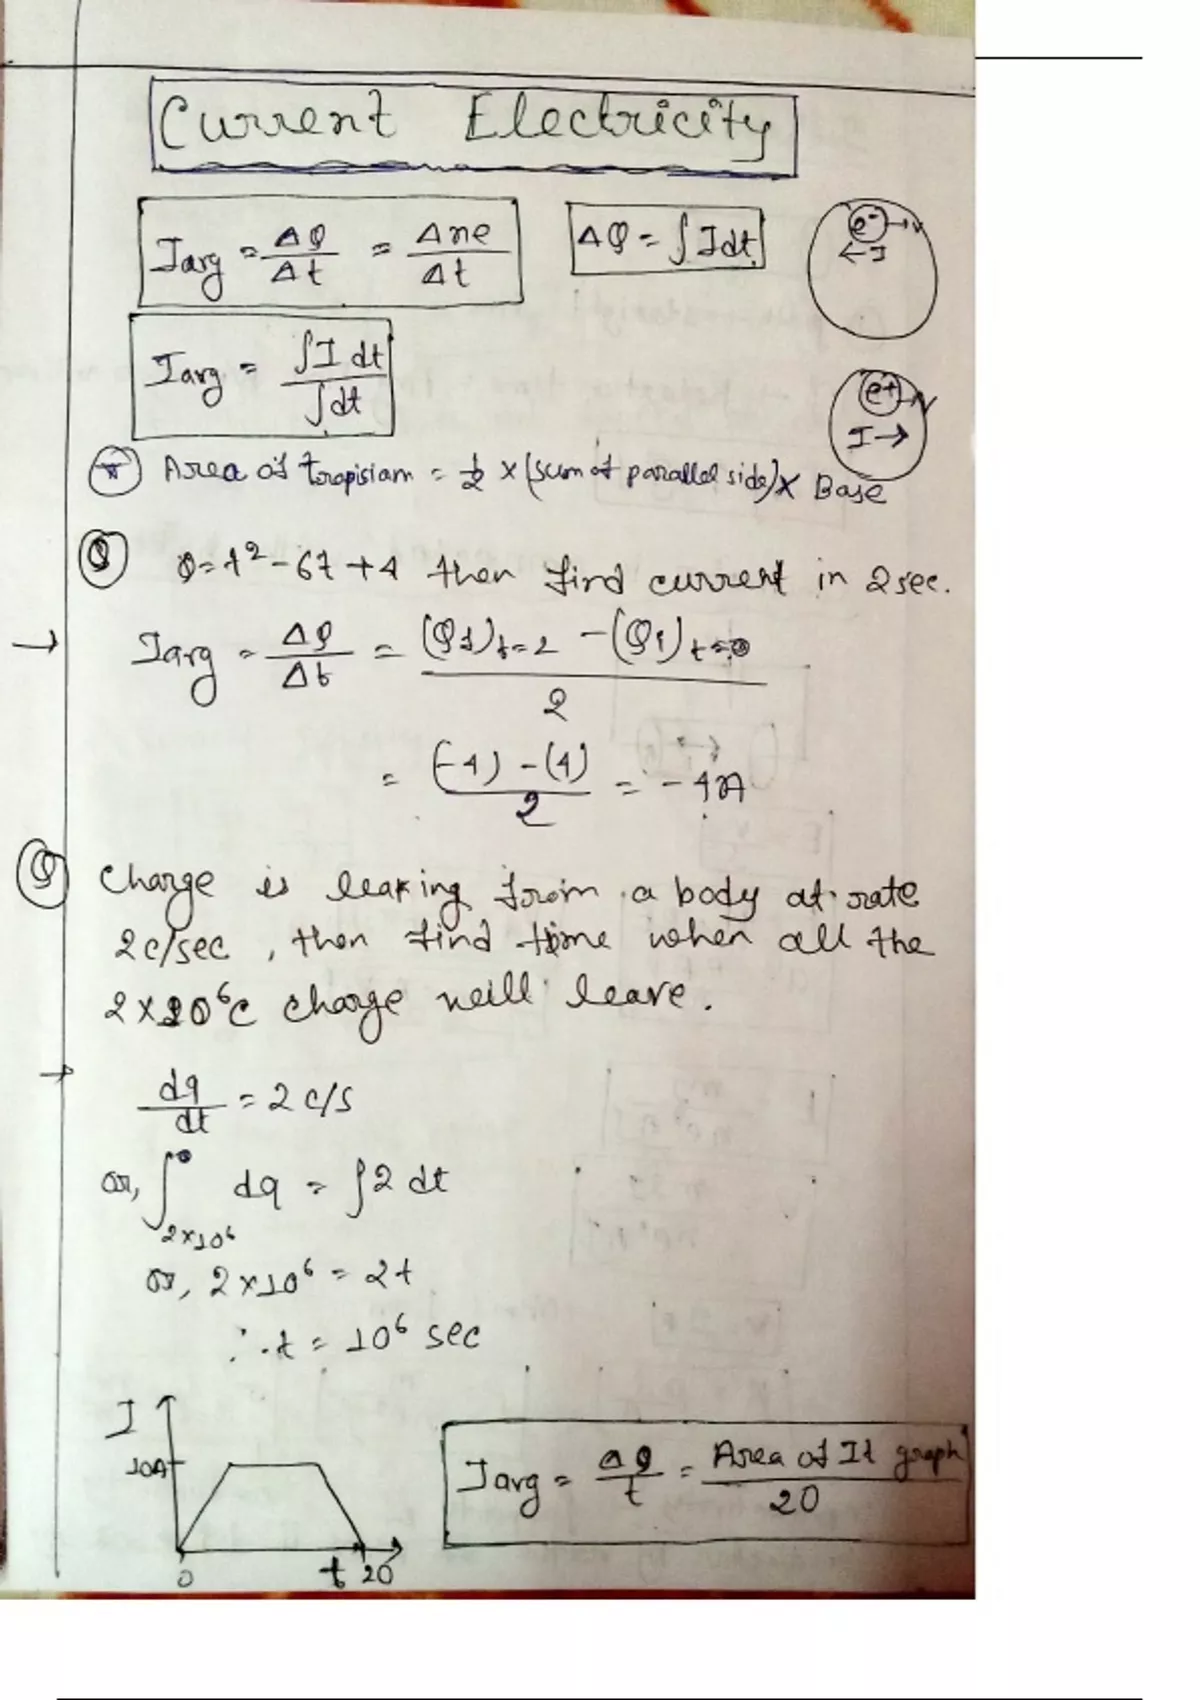 Current Electricity
Iavg = ΔQ/Δt = Δne/Δt
ΔQ = ∫Idt
e⁻ → v
← I
Iavg = ∫I dt / ∫dt
e+ → v
I →
Area of tropisiam = 1/2 × (sum of parallel side) × Base
Q Q = t² - 6t + 4 then find current in 2 sec.
→ Iavg = ΔQ/Δt = (Qf)t=2 - (Qi)t=0 / 2
= (-4) - (4) / 2 = -4A
Q Charge is leaking from a body at rate
2c/sec, then find time when all the
2×10⁶C charge will leave.
→ dq/dt = 2 c/s
or, ∫ 2×10⁶ 0 dq = ∫2 dt
or, 2×10⁶ = 2t
∴ t = 10⁶ sec
I
10A
0 t 20
Iavg = ΔQ/t = Area of It graph / 20